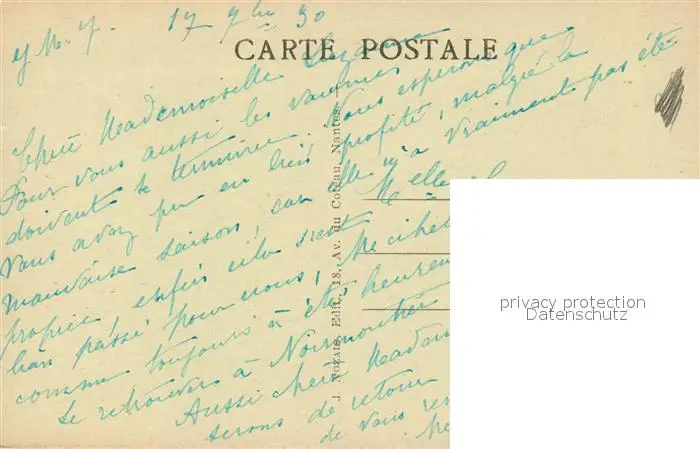 17 7bre 30
CARTE POSTALE
Chère Mademoiselle Suzanne
Pour vous aussi les vacances
doivent se terminer. Nous espérons que
vous avez pu en bien profité, malgré la
mauvaise saison, car elle n'a vraiment pas été
propice, enfin cela s'est
bien passé pour nous,
comme toujours a été heureu
se retrouver à Noirmoutier
Aussi chère Madem
serons de retour
de vous
Melle
J. NOZAIS, Edit., 18, Av. du Coteau, Nantes
privacy protection
Datenschutz